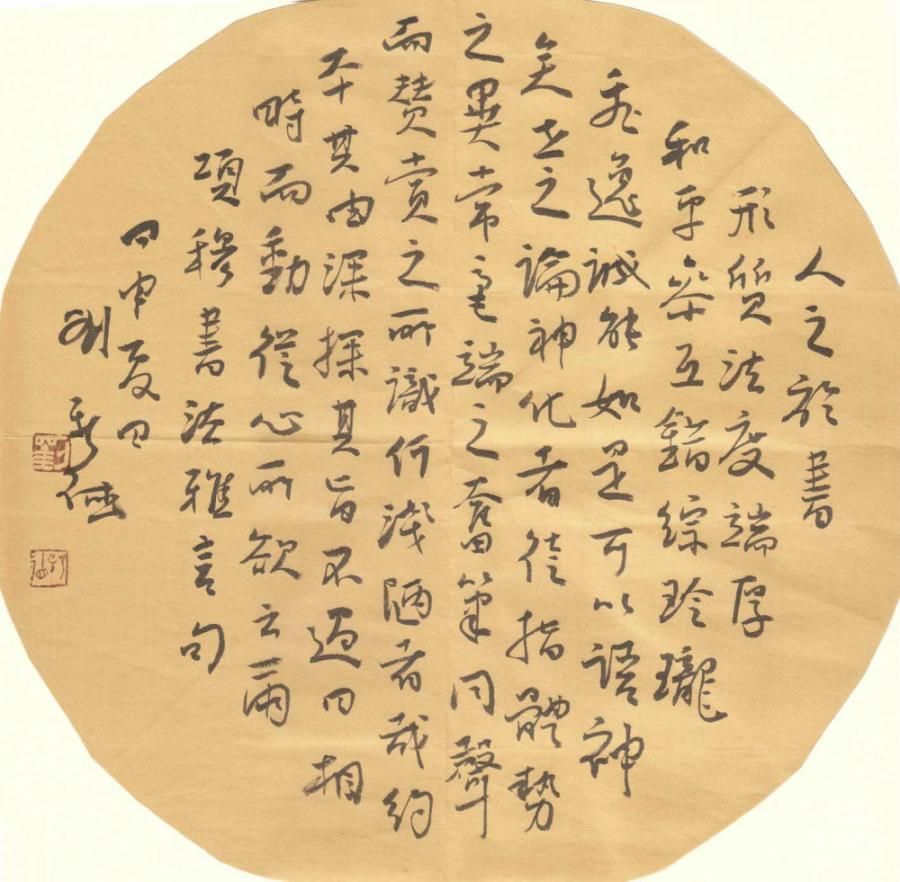 人之於書
形質法度端厚
和平參互錯綜玲瓏
飛逸誠能如是可以語神
矣世之論神化者徒指體勢
之異常毫端之奮筆同聲
而贊賞之所識何淺陋者哉約
本其由深探其旨不過曰相
時而動從心所欲云爾
項穆書法雅言句
丙申夏日
劉